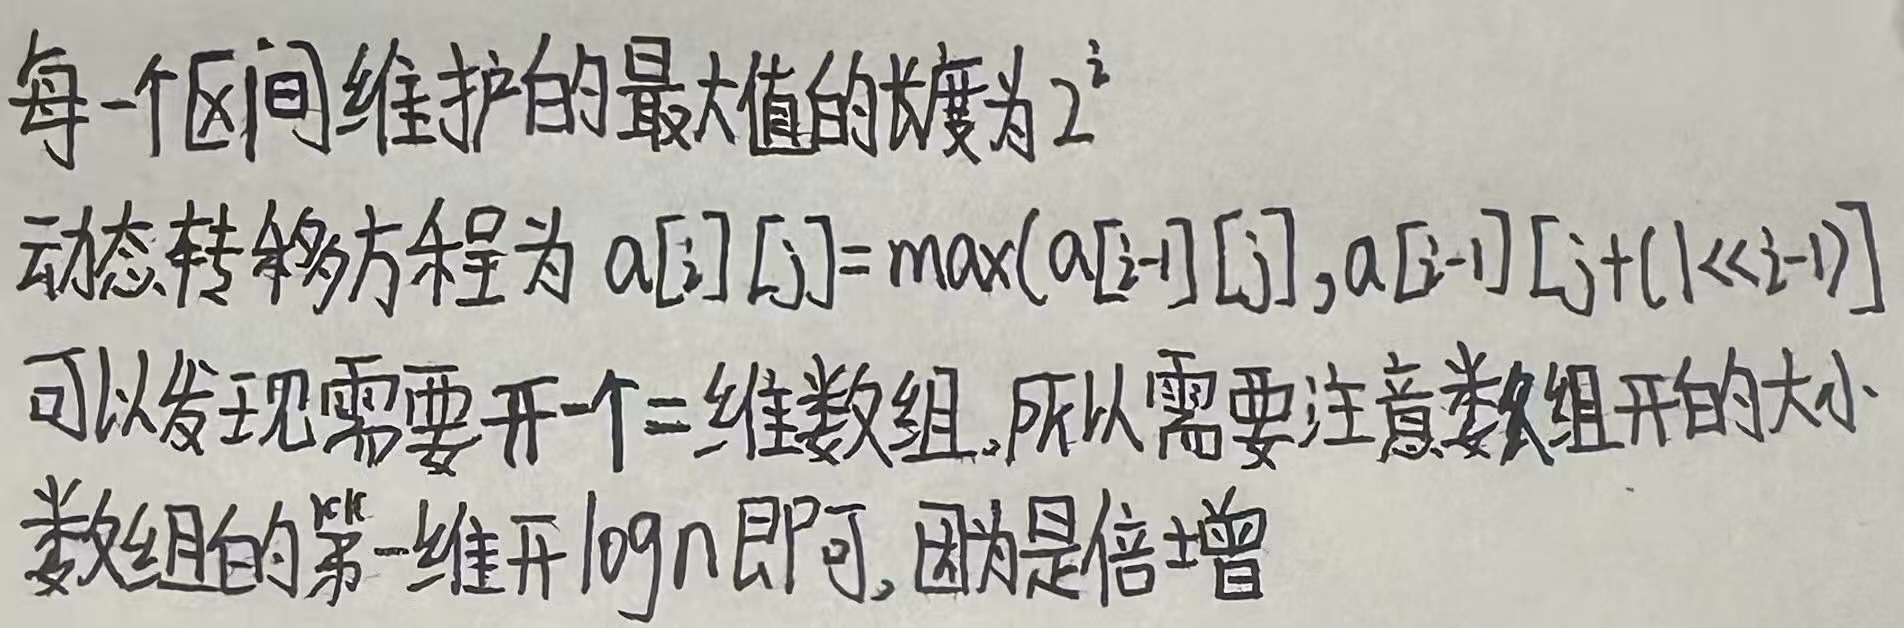 每一个区间维护的最大值的长度为2^i
动态转移方程为 a[i][j]=max(a[i-1][j],a[i-1][j+(1<<i-1)]
可以发现需要开一个二维数组,所以需要注意数组开的大小
数组的第一维开logn即可,因为是倍增